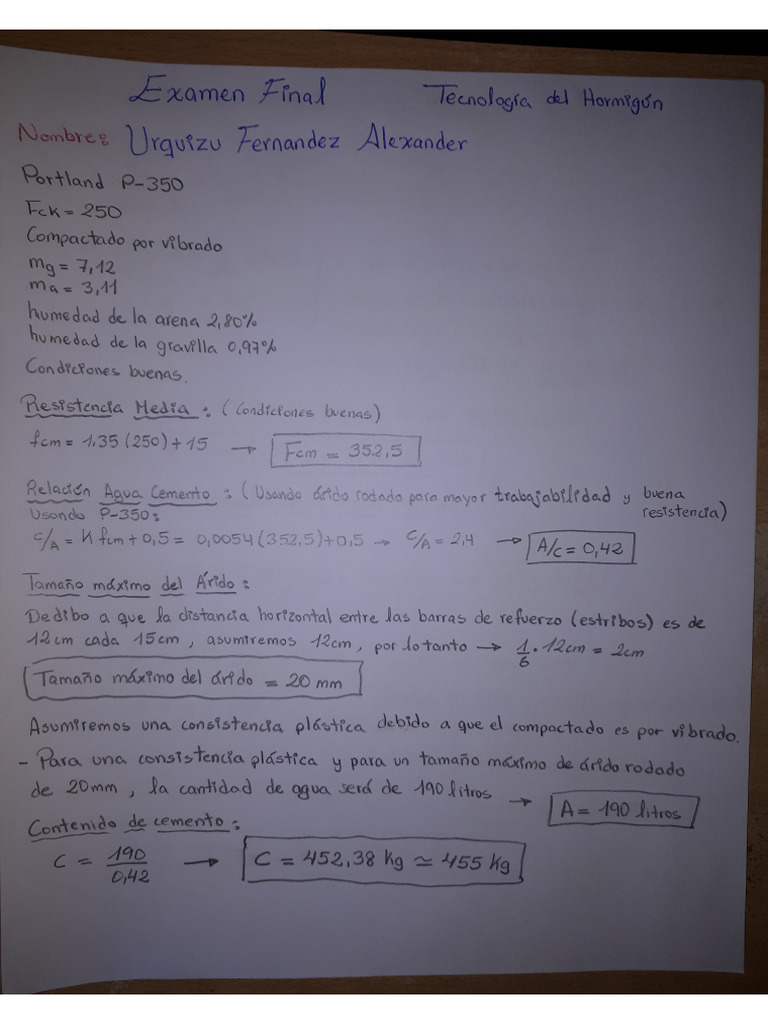 Examen Final Tecnología del Hormigón
Nombre: Urquizu Fernandez Alexander
Portland P-350
Fck = 250
Compactado por vibrado
mg = 7,12
ma = 3,11
humedad de la arena 2,80%
humedad de la gravilla 0,97%
Condiciones buenas.
Resistencia Media : (Condiciones buenas)
fcm = 1,35 (250) + 15 → Fcm = 352,5
Relación Agua Cemento : (Usando árido rodado para mayor trabajabilidad y buena
resistencia)
Usando P-350:
C/A = K fcm + 0,5 = 0,0054 (352,5) + 0,5 → C/A = 2,4 → A/C = 0,42
Tamaño máximo del Árido :
Dedibo a que la distancia horizontal entre las barras de refuerzo (estribos) es de
12cm cada 15cm , asumiremos 12cm , por lo tanto → 1/6 · 12cm = 2cm
Tamaño máximo del árido = 20 mm
Asumiremos una consistencia plástica debido a que el compactado es por vibrado.
- Para una consistencia plástica y para un tamaño máximo de árido rodado
de 20mm , la cantidad de agua será de 190 litros → A = 190 litros
Contenido de cemento :
C = 190/0,42 → C = 452,38 kg ≃ 455 kg